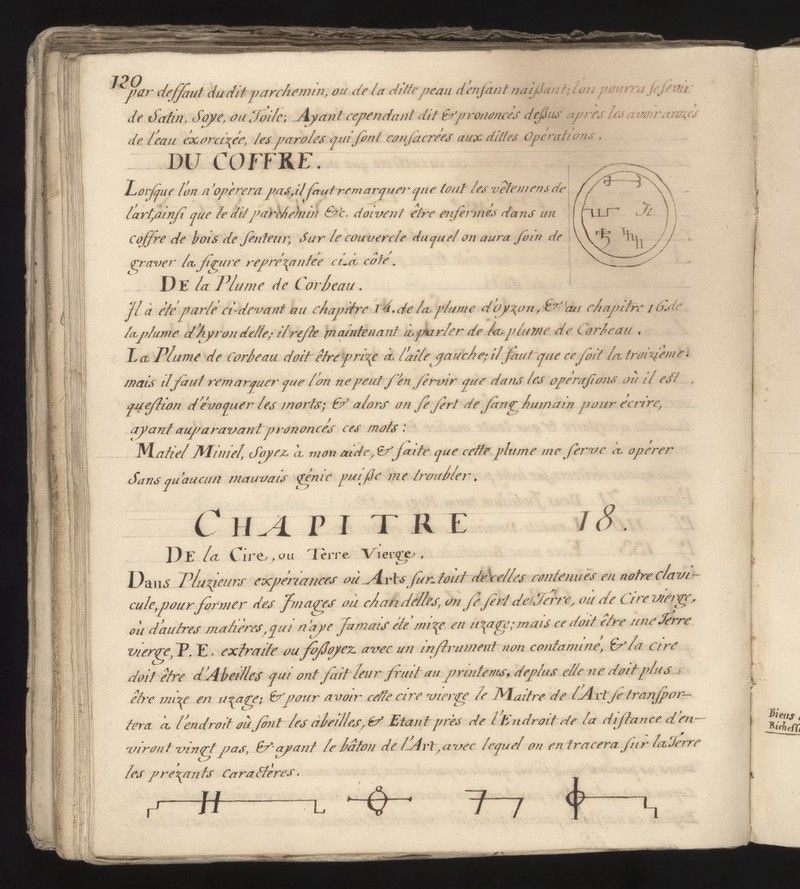 120
par deffaut dudit parchemin, ou de la ditte peau d'enfant naissant; l'on pourra se servir
de Satin, Soye, ou Toile; Ayant cependant dit & prononcés dessus après les avoir arrozés
de l'eau éxorcizée, les paroles qui sont consacrées aux dittes Opérations.
DU COFFRE.
Lorsque l'on n'opèrera pas, il faut remarquer que tout les vêtemens de
l'art, ainsi que le dit parchemin &c. doivent être enfermés dans un
coffre de bois de senteur, Sur le couvercle duquel on aura soin de
graver la figure reprézantée ci-à côté.
DE la Plume de Corbeau.
Jl à été parlé ci-devant au chapitre 14. de la plume d'oyzon, & au chapitre 16. de
la plume d'hyrondelle; il reste maintenant à parler de la plume de Corbeau.
La Plume de Corbeau doit être prize à l'aile gauche; il faut que ce soit la troizième.
mais il faut remarquer que l'on ne peut s'en servir que dans les opérasions où il est
question d'évoquer les morts; & alors on se sert de sang humain pour écrire,
ayant auparavant prononcés ces mots:
Matiel Miniel, Soyez à mon aide, & faite que cette plume me serve à opérer
Sans qu'aucun mauvais génie puisse me troubler.
CHAPITRE 18.
DE la Cire, ou Terre Vierge.
Dans Pluzieurs expériances où Arts sur-tout de celles contenuës en notre clavi-
cule, pour former des Jmages ou chandelles, on se sert de Terre, ou de Cire vierge,
où d'autres matières, qui n'aye Jamais été mize en uzage; mais ce doit être une Terre
vierge, P. E. extraite ou fossoyez avec un instrument non contaminé, & la cire
doit être d'Abeilles qui ont fait leur fruit au printems, deplus elle ne doit plus
être mize en uzage; & pour avoir cette cire vierge le Maitre de l'Art se transpor-
tera à l'endroit où sont les abeilles, & Etant près de l'Endroit de la distance d'en-
viront vingt pas, & ayant le bâton de l'Art, avec lequel on en tracera sur la Terre
les prézants Caractères.
Biens
Richess